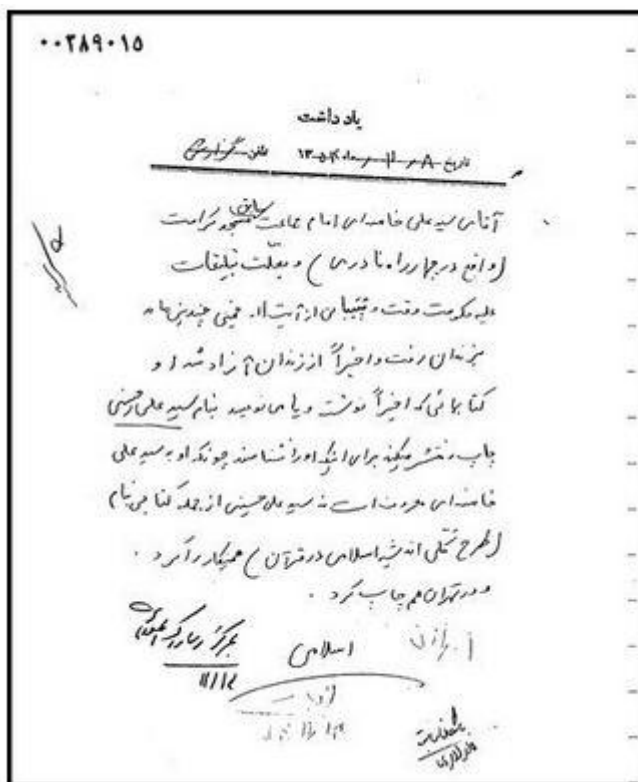 ۰۰۲۸۹۰۱۵
یادداشت
آقای سید علی خامنه‌ای امام جماعت سابق مسجد کرامت
(واقع در چهارراه نادری) و بعلت تبلیغات
علیه حکومت وقت و پشتیبانی از آیت‌اله خمینی چندین ماه
بزندان رفت و اخیراً از زندان آزاد شد او
کتابهائی که اخیراً نوشت و یا می‌نویسد بنام سید علی حسینی
چاپ و نشر میکند برای اینکه او را نشناسند چونکه او به سید علی
خامنه‌ای معروف است نه سید علی حسینی از جمله کتابی بنام
(طرح کلی اندیشه اسلامی در قرآن) همیکار را کرد.
و در تهران هم چاپ کرد.
اسلامی